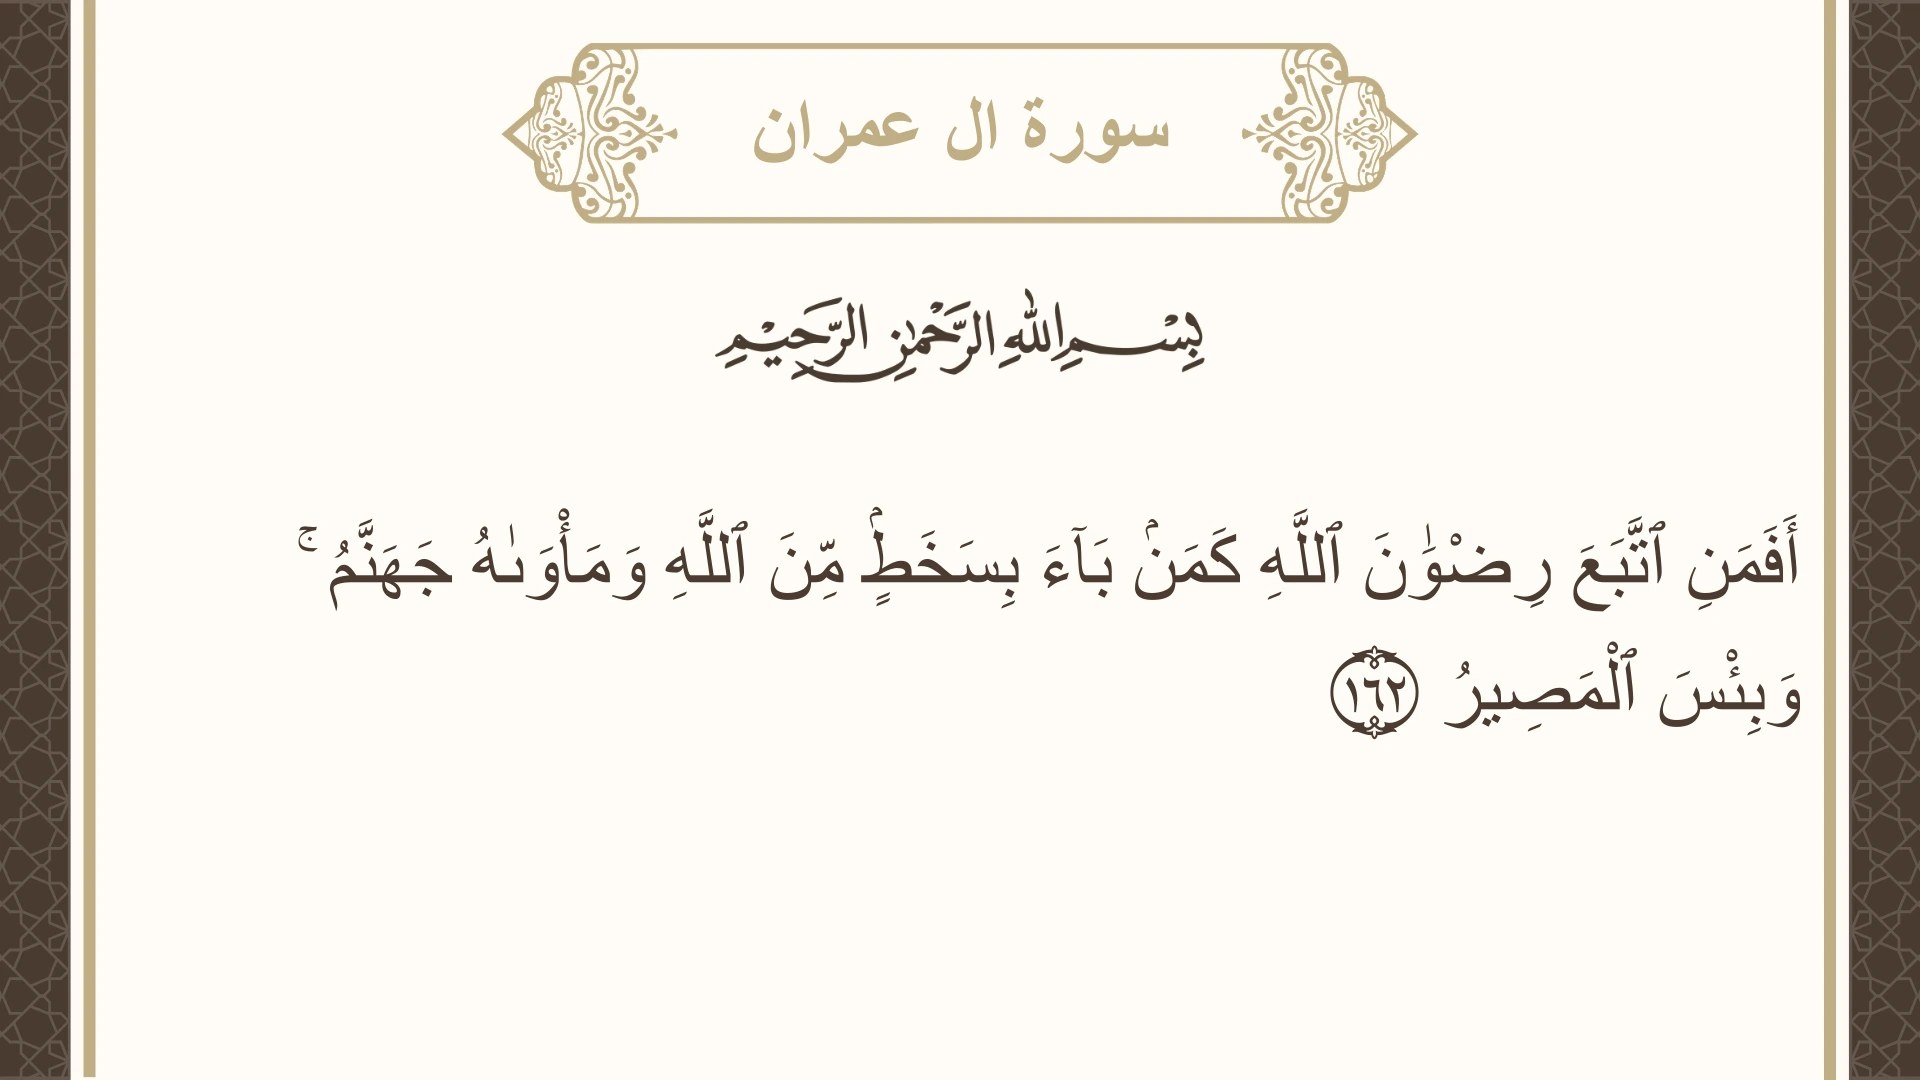 سورة ال عمران
بِسْمِ اللهِ الرَّحْمٰنِ الرَّحِيْمِ
أَفَمَنِ ٱتَّبَعَ رِضْوَٰنَ ٱللَّهِ كَمَنۢ بَآءَ بِسَخَطٍۢ مِّنَ ٱللَّهِ وَمَأْوَىٰهُ جَهَنَّمُ ۚ
وَبِئْسَ ٱلْمَصِيرُ ١٦٢